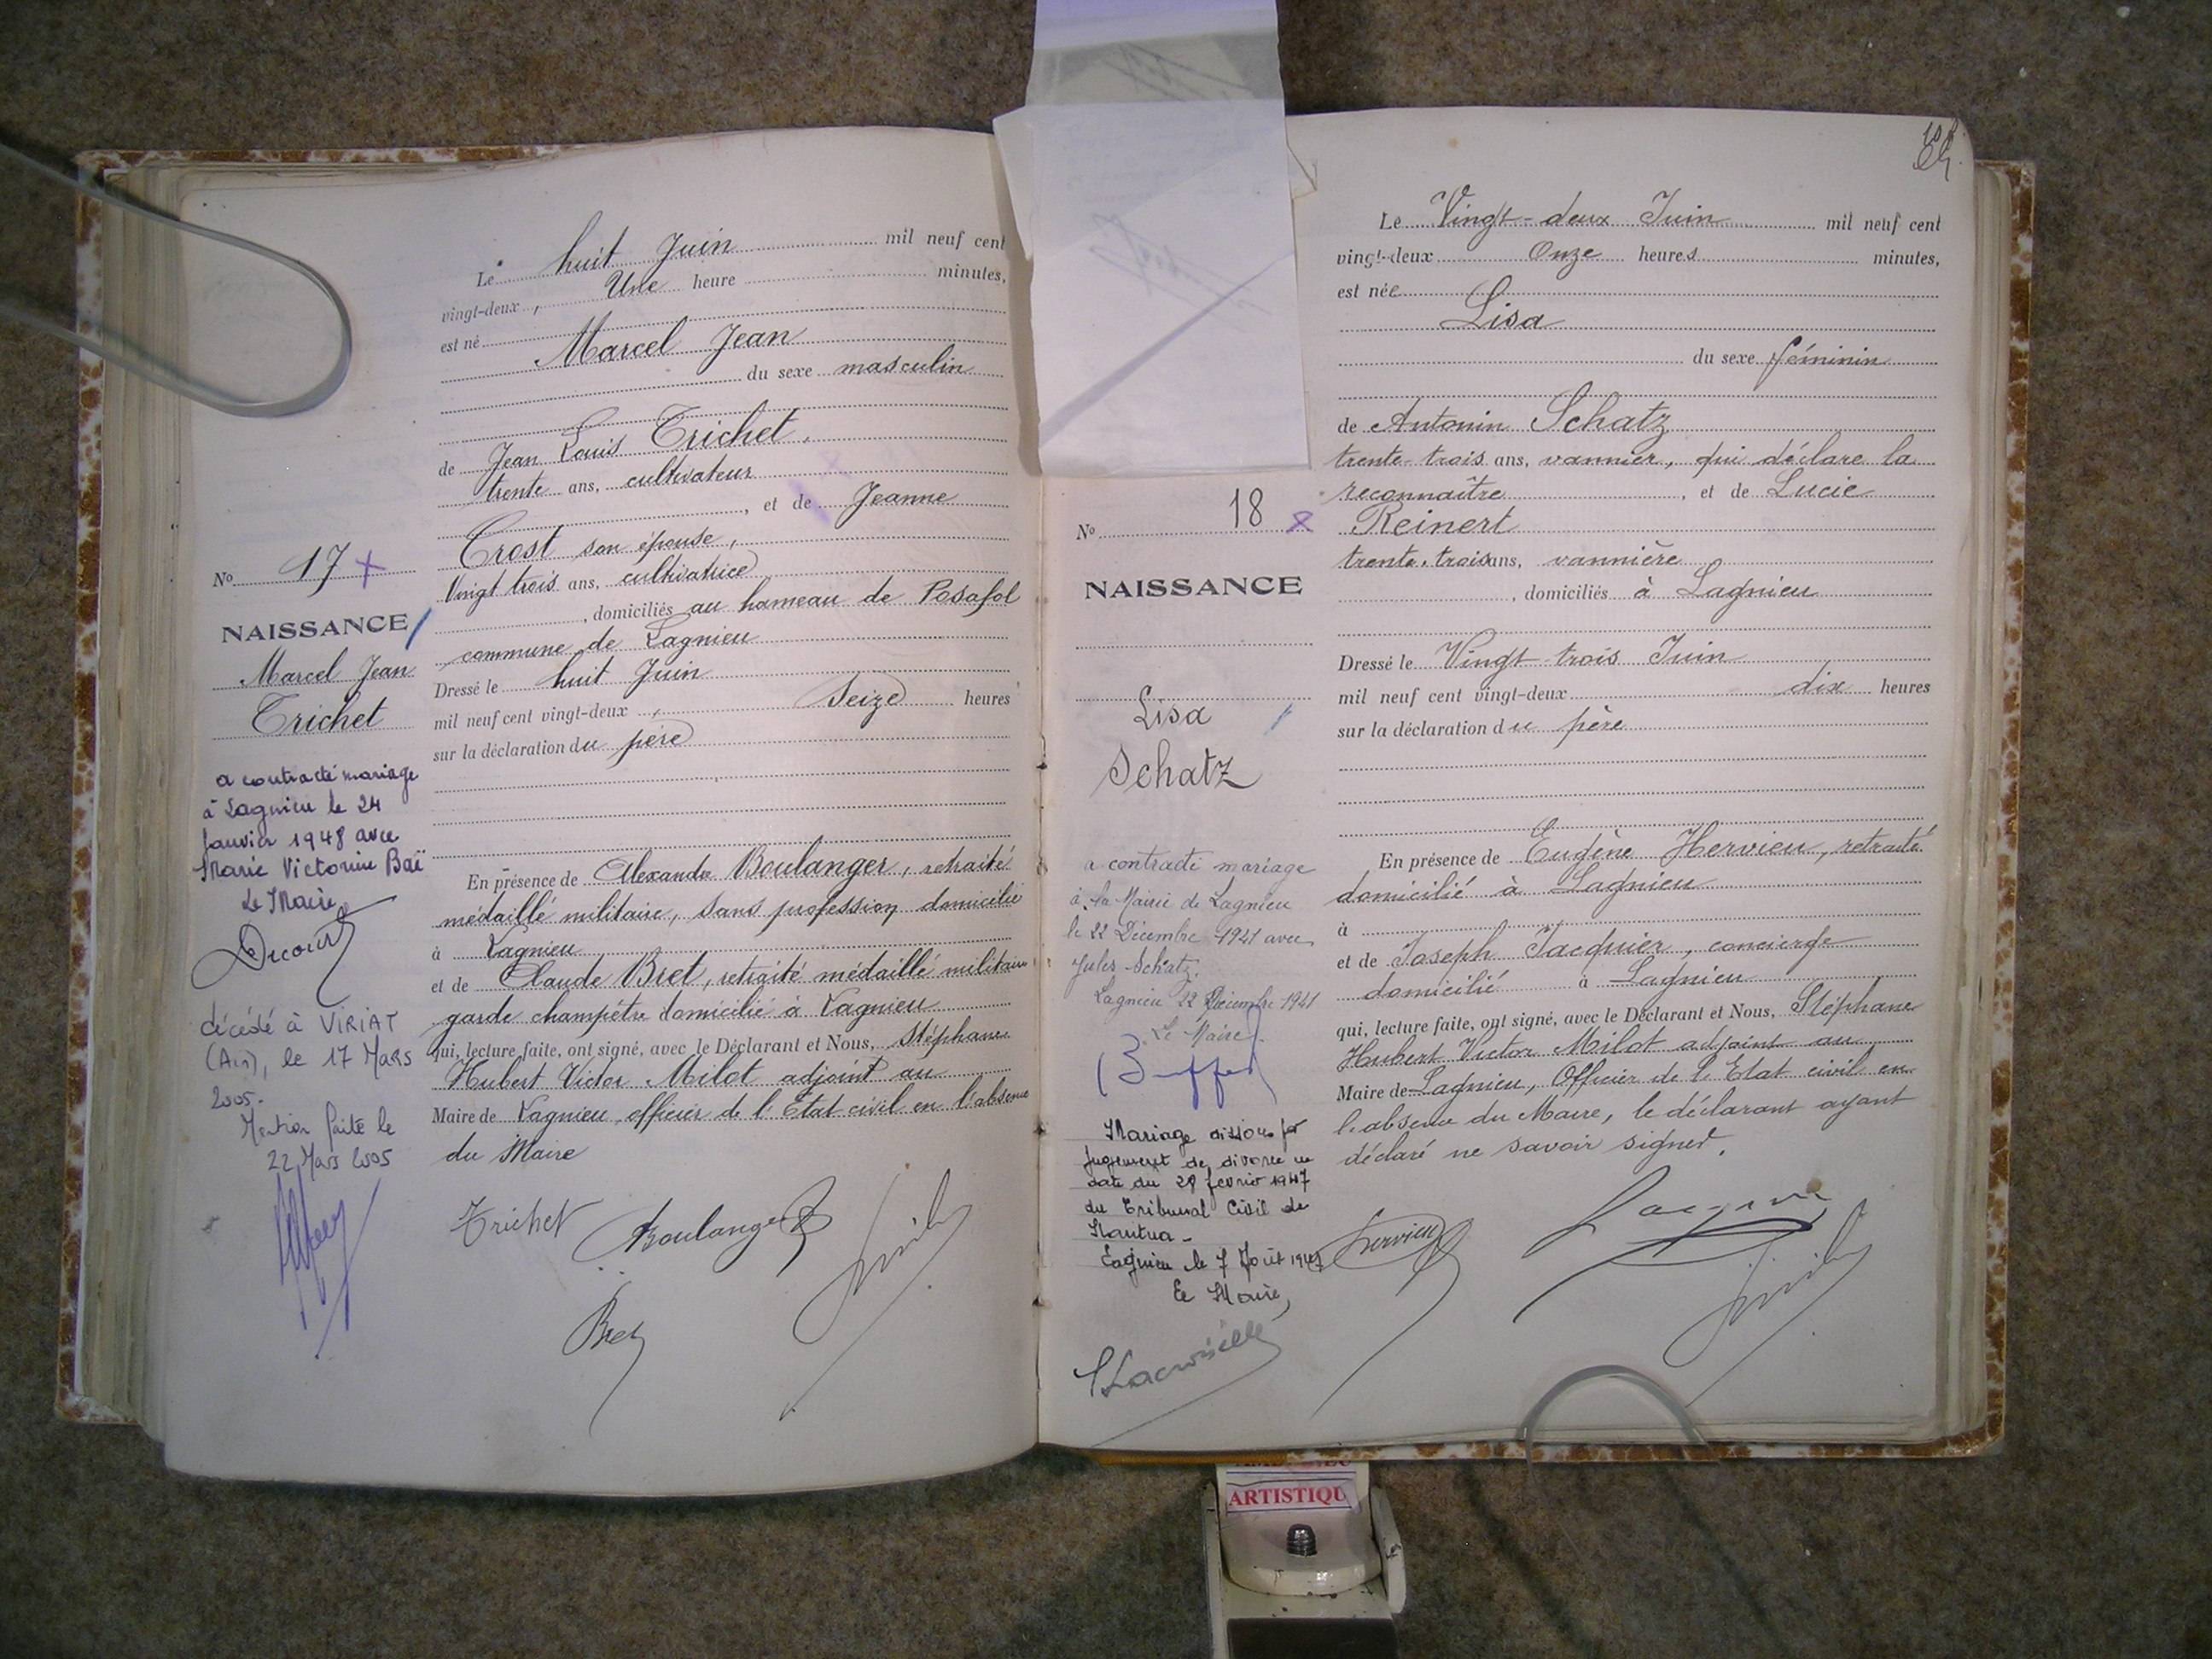 Le huit Juin mil neuf cent
vingt-deux, Une heure minutes,
est né
Marcel Jean
du sexe masculin
de Jean Louis Trichet,
trente ans, cultivateur
, et de Jeanne
Crost son épouse,
Vingt trois ans, cultivatrice
, domiciliés au hameau de Posafol
commune de Lagnieu
Dressé le huit Juin
mil neuf cent vingt-deux, Seize heures
sur la déclaration du père
En présence de Alexandre Boulanger, retraité
médaillé militaire, sans profession domicilié
à Lagnieu
et de Claude Bret, retraité médaillé militaire
garde champêtre domicilié à Lagnieu
qui, lecture faite, ont signé, avec le Déclarant et Nous, Stéphane
Hubert Victor Milot adjoint au
Maire de Lagnieu, officier de l'Etat civil en l'absence
du Maire
Trichet Boulanger
Bret
No 17
NAISSANCE
Marcel Jean
Trichet
a contracté mariage
à Lagnieu le 24
Janvier 1948 avec
Marie Victorine Baï
Le Maire
décédé à VIRIAT
(Ain), le 17 MARS
2005.
Mention faite le
22 Mars 2005
Le Vingt-deux Juin mil neuf cent
vingt-deux Onze heures minutes,
est née
Lisa
du sexe féminin
de Antonin Schatz
trente-trois ans, vannier, qui déclare la
reconnaître, et de Lucie
Reinert
trente-trois ans, vannière
, domiciliés à Lagnieu
Dressé le Vingt-trois Juin
mil neuf cent vingt-deux dix heures
sur la déclaration du père
En présence de Eugène Hervieu, retraité
domicilié à Lagnieu
à
et de Joseph Jacquier, concierge
domicilié à Lagnieu
qui, lecture faite, ont signé, avec le Déclarant et Nous, Stéphane
Hubert Victor Milot adjoint au
Maire de Lagnieu, Officier de l'Etat civil en
l'absence du Maire, le déclarant ayant
déclaré ne savoir signer.
Hervieu
No 18
NAISSANCE
Lisa
Schatz
a contracté mariage
à la Mairie de Lagnieu
le 22 Décembre 1941 avec
Jules Schatz.
Lagnieu 22 Décembre 1941
Le Maire.
Mariage dissous par
jugement de divorce en
date du 28 février 1947
du Tribunal Civil de
Nantua -
Lagnieu le 7 Août 1947
Le Maire,
ARTISTIQU